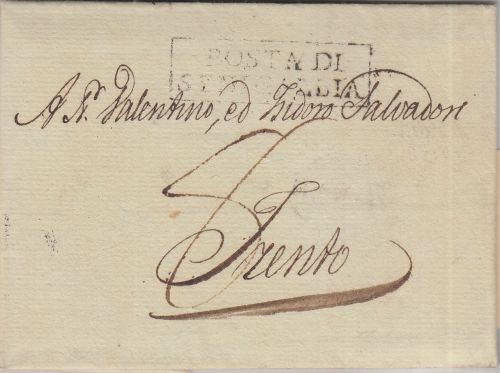 POSTA DI
SINIGALLIA
A Sr. Valentino, ed Isidoro Salvadori
Trento